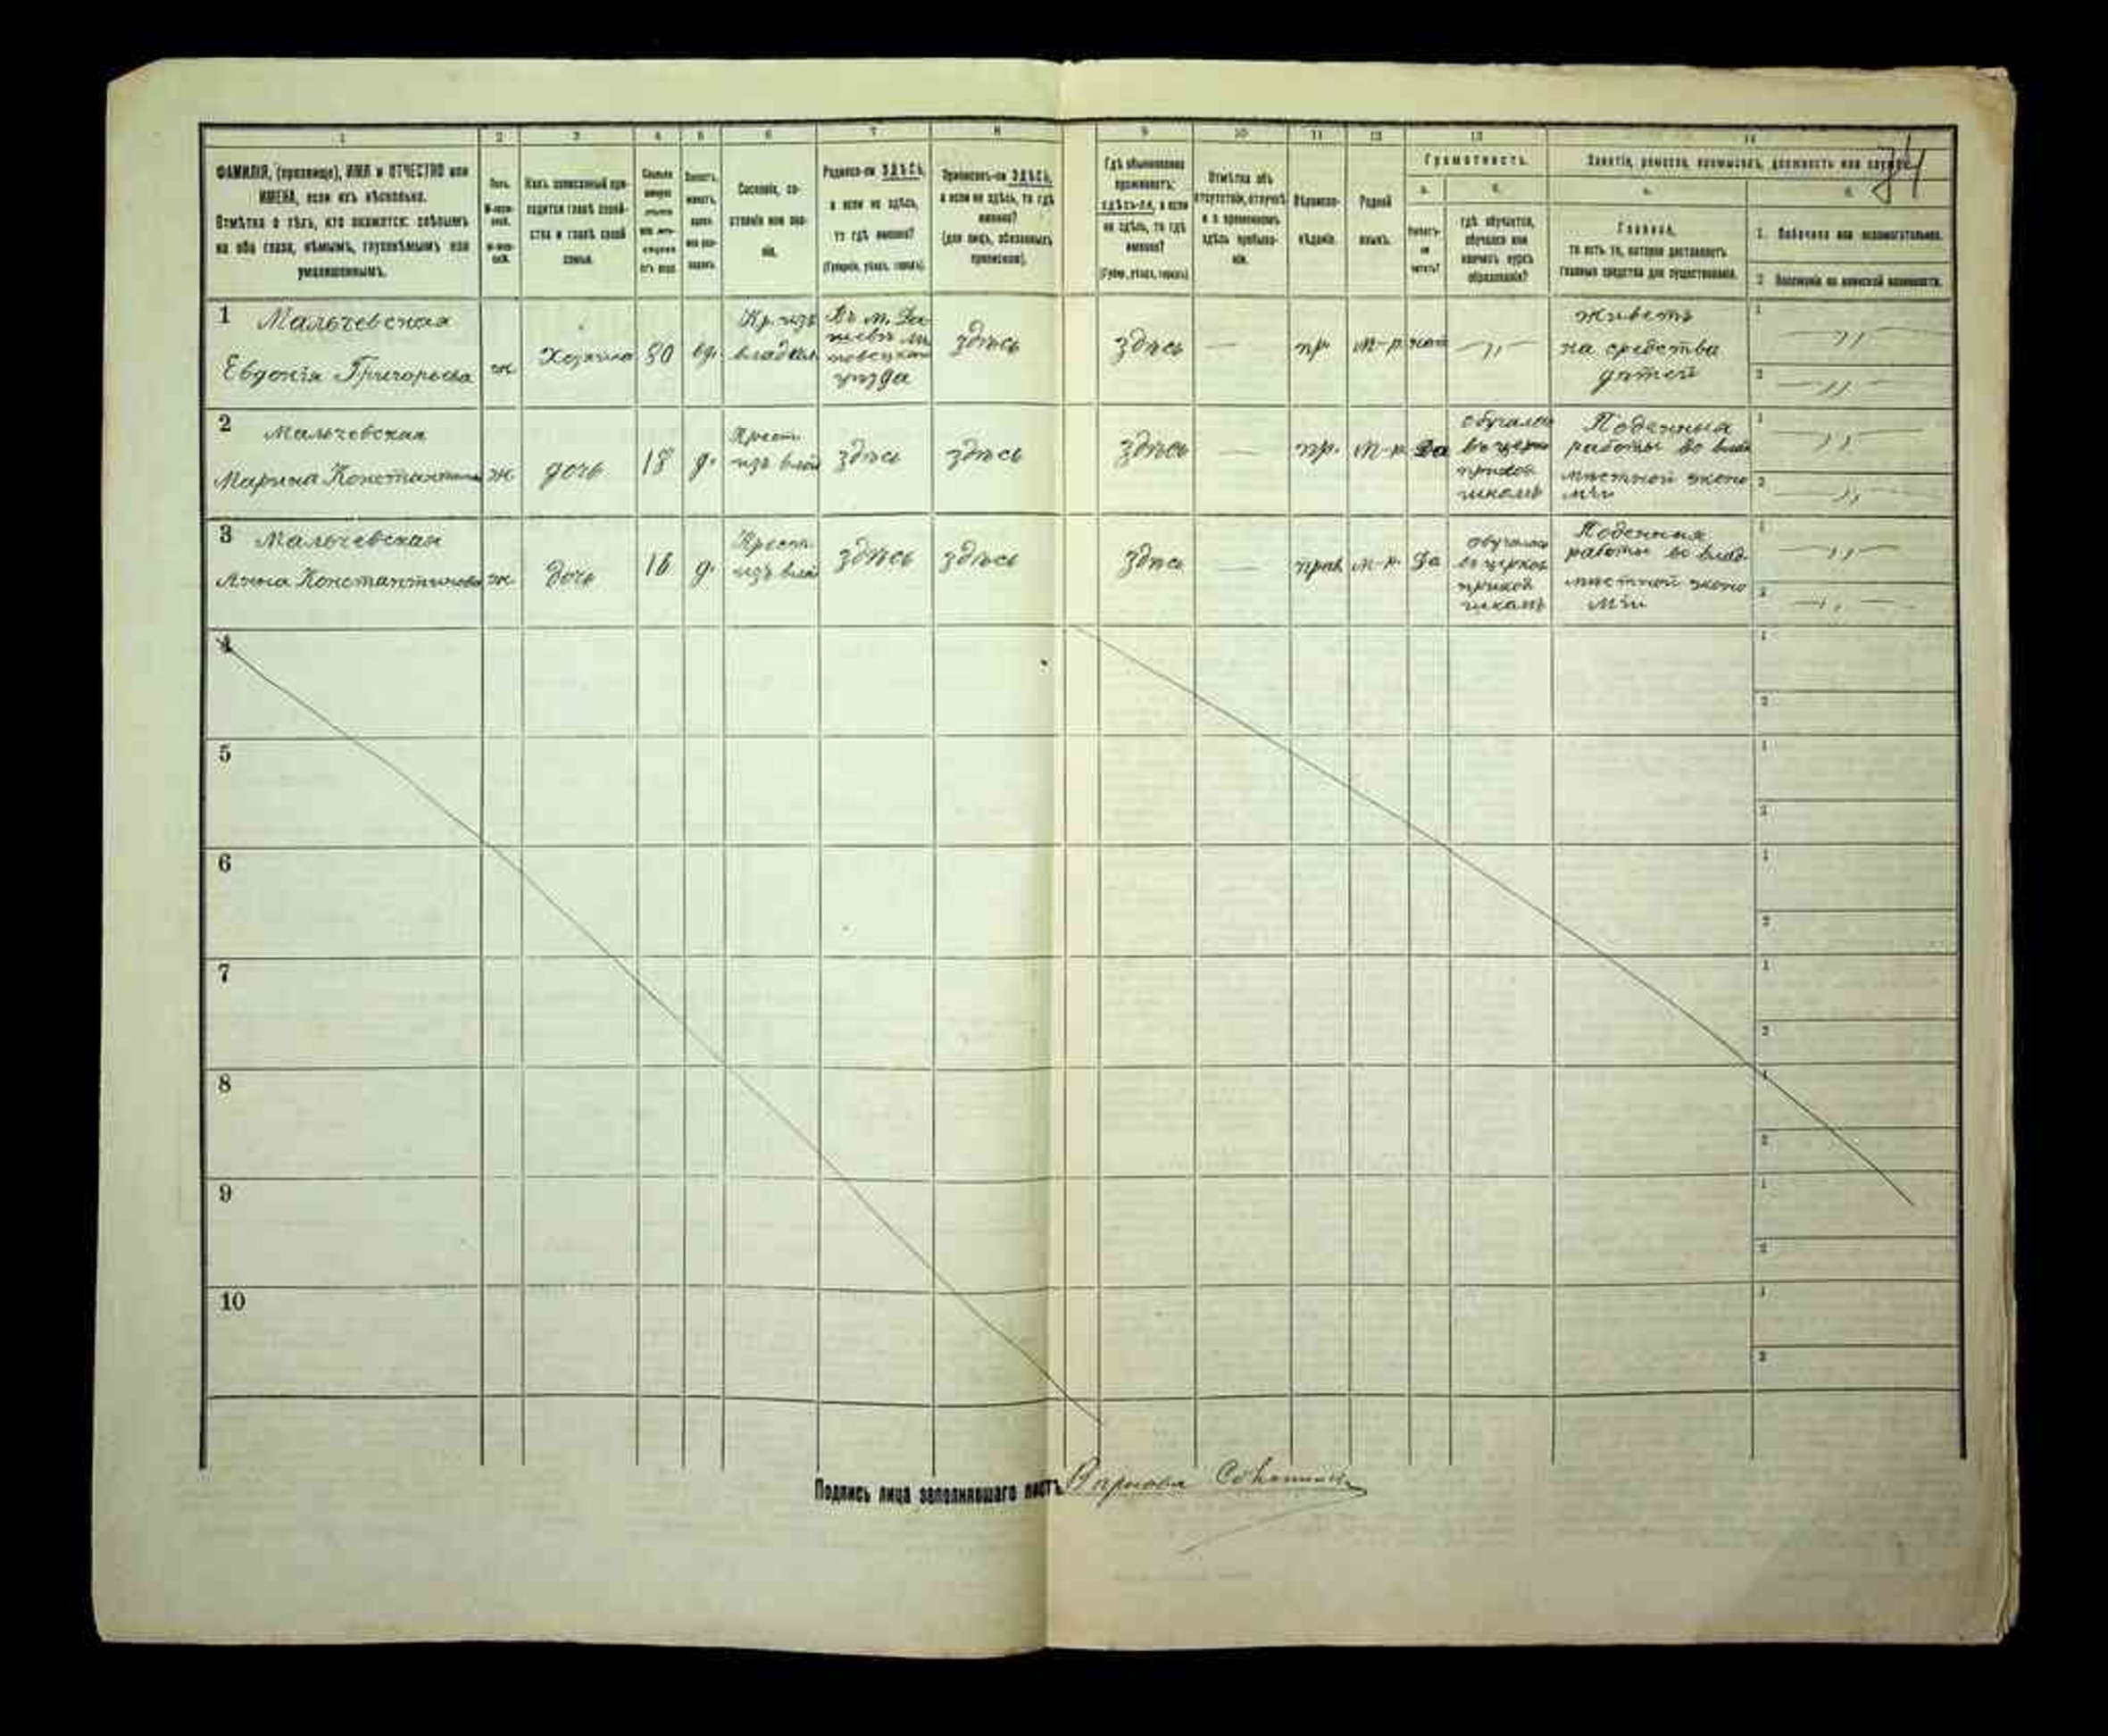 1 2 3 4 5 6 7 8 9 10 11 12 13 14
74
ФАМИЛІЯ, (прозвище), ИМЯ и ОТЧЕСТВО или
ИМЕНА, если ихъ нѣсколько.
Отмѣтка о тѣхъ, кто окажется: слѣпымъ
на оба глаза, нѣмымъ, глухонѣмымъ или
умалишеннымъ.
Полъ.
Какъ записанный при-
ходится главѣ хозяй-
ства и главѣ своей
семьи.
Сословіе, со-
стояніе или зва-
ніе.
Родился-ли ЗДѢСЬ,
а если не здѣсь,
то гдѣ именно?
(Губернія, уѣздъ, городъ).
Приписанъ-ли ЗДѢСЬ,
а если не здѣсь, то гдѣ
именно?
(для лицъ, обязанныхъ
припискою).
Гдѣ обыкновенно
проживаетъ:
здѣсь-ли, а если
не здѣсь, то гдѣ
именно?
(Губер., уѣздъ, городъ).
Отмѣтка объ
отсутствіи, отлучкѣ
и о временномъ
здѣсь пребыва-
ніи.
Вѣроиспо-
вѣданіе.
Родной
языкъ.
Грамотность.
а.
Умѣетъ-
ли
читать?
б.
гдѣ обучается,
обучался или
кончилъ курсъ
образованія?
Занятіе, ремесло, промыселъ, должность или служба.
а.
Главное,
то есть то, которое доставляетъ
главныя средства для существованія.
б.
1. Побочное или вспомогательное.
2. Положеніе по воинской повинности.
1 Мальчевская
Евдокія Григорьева
ж
Хозяйка
80
вд.
Кр. изъ
владѣл.
Въ м. Да-
шевѣ ли
повецкаго
уѣзда
здѣсь
здѣсь
—
пр.
м-р.
нѣтъ
—„—
живетъ
на средства
дѣтей
1 —„—
2 —„—
2 Мальчевская
Марина Константинова
ж
дочь
18
д.
Крест.
изъ влад
здѣсь
здѣсь
здѣсь
—
пр.
м-р.
Да
обучалась
въ церко
приход
школѣ
Поденныя
работы во влад
мѣстной эконо
міи
1 —„—
2 —„—
3 Мальчевская
Анна Константинова
ж
дочь
16
д.
Крест.
изъ влад
здѣсь
здѣсь
здѣсь
—
прав
м-р.
Да
обучалась
въ церков
приход
школѣ
Поденныя
работы во влад.
мѣстной эконо
міи
1 —„—
2 —„—
4 1
2
5 1
2
6 1
2
7 1
2
8 1
2
9 1
2
10 1
2
Подпись лица заполнявшаго листъ